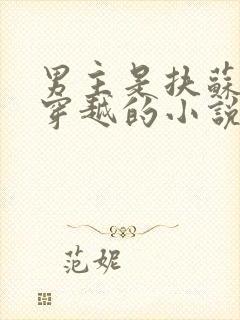 男主是扶蘇
穿越的小說
范妮